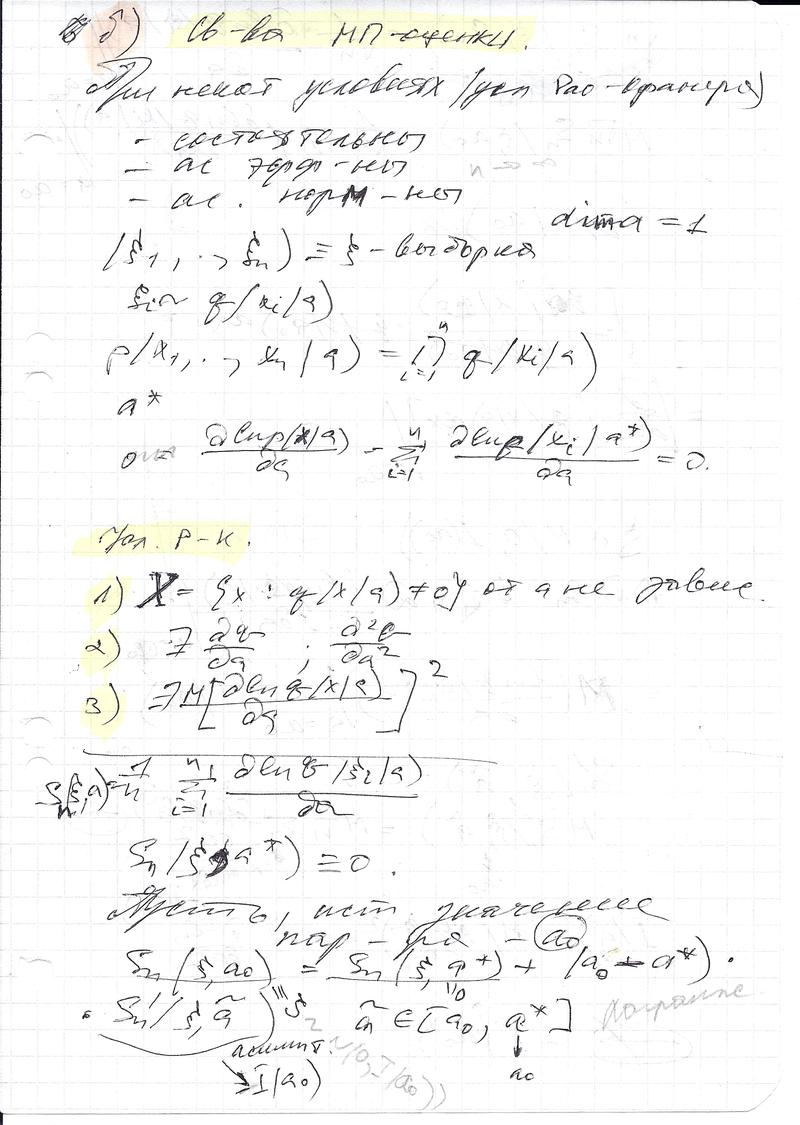 б) Св-ва МП-оценки.
При некот условиях (усл Рао-Крамера)
- состоятельны
- ас эфф-ны
- ас. норм-ны
dim a = 1
(ξ₁, ., ξₙ) ≡ ξ - выборка
ξᵢ ~ q(xᵢ|a)
p(x₁, ., xₙ|a) = ∏ᵢ₌₁ⁿ q(xᵢ|a)
a*
0 = ∂ln p(x|a)/∂a = ∑ᵢ₌₁ⁿ ∂ln q(xᵢ|a*)/∂a = 0.
Усл. Р-К.
1) X = {x : q(x|a) ≠ 0} от a не завис.
2) ∃ ∂q/∂a ; ∂²q/∂a²
3) ∃ M[∂ln q(x|a)/∂a]²
Sₙ(ξ,a) = 1/n ∑ᵢ₌₁ⁿ ∂ln q(ξᵢ|a)/∂a
Sₙ(ξ,a*) ≡ 0.
Пусть, ист значение
пар-ра - a₀
Sₙ(ξ,a₀) = Sₙ(ξ,a*) + (a₀ - a*) ·
· Sₙ'(ξ,ã) ã ∈ [a₀, a*]
≡ξ₂
=0
Лагранж
асимпт. ~(0, I(a₀))
↘ I(a₀)
↓
a₀